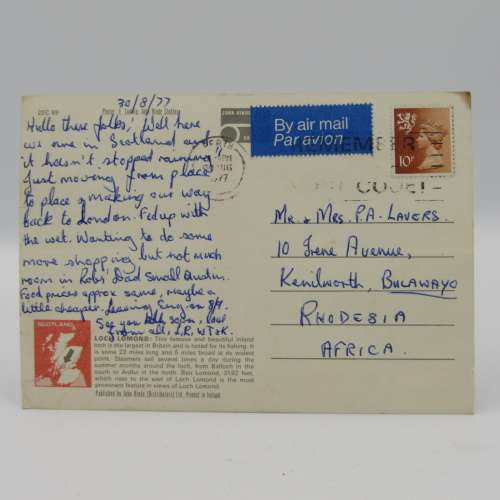 30/8/77
Hello there folks! Well here
we are in Scotland and
it hasn't stopped raining
Just moving from place
to place & making our way
back to London. Fed up with
the wet. Wanting to do some
more shopping but not much
room in Robs' Dad Small Austin.
Food prices approx same, maybe a
little cheaper. Leaving Eng on 8/9.
See you both soon, love
from all,
SCOTLAND
LOCH LOMOND: This famous and beautiful inland
loch is the largest in Britain and is noted for its fishing. It
is some 23 miles long and 5 miles broad at its widest
point. Steamers sail several times a day during the
summer months around the loch, from Balloch in the
south to Ardlui in the north. Ben Lomond, 3192 feet,
which rises to the east of Loch Lomond is the most
prominent feature in views of Loch Lomond.
Published by John Hinde (Distributors) Ltd., Printed in Ireland
JOHN HINDE
By air mail
Par avion
REMEMBER
CODE!
10P
Mr. & Mrs. P.A. LAVERS.
10 Irene Avenue,
Kenilworth, BULAWAYO
RHODESIA
AFRICA.